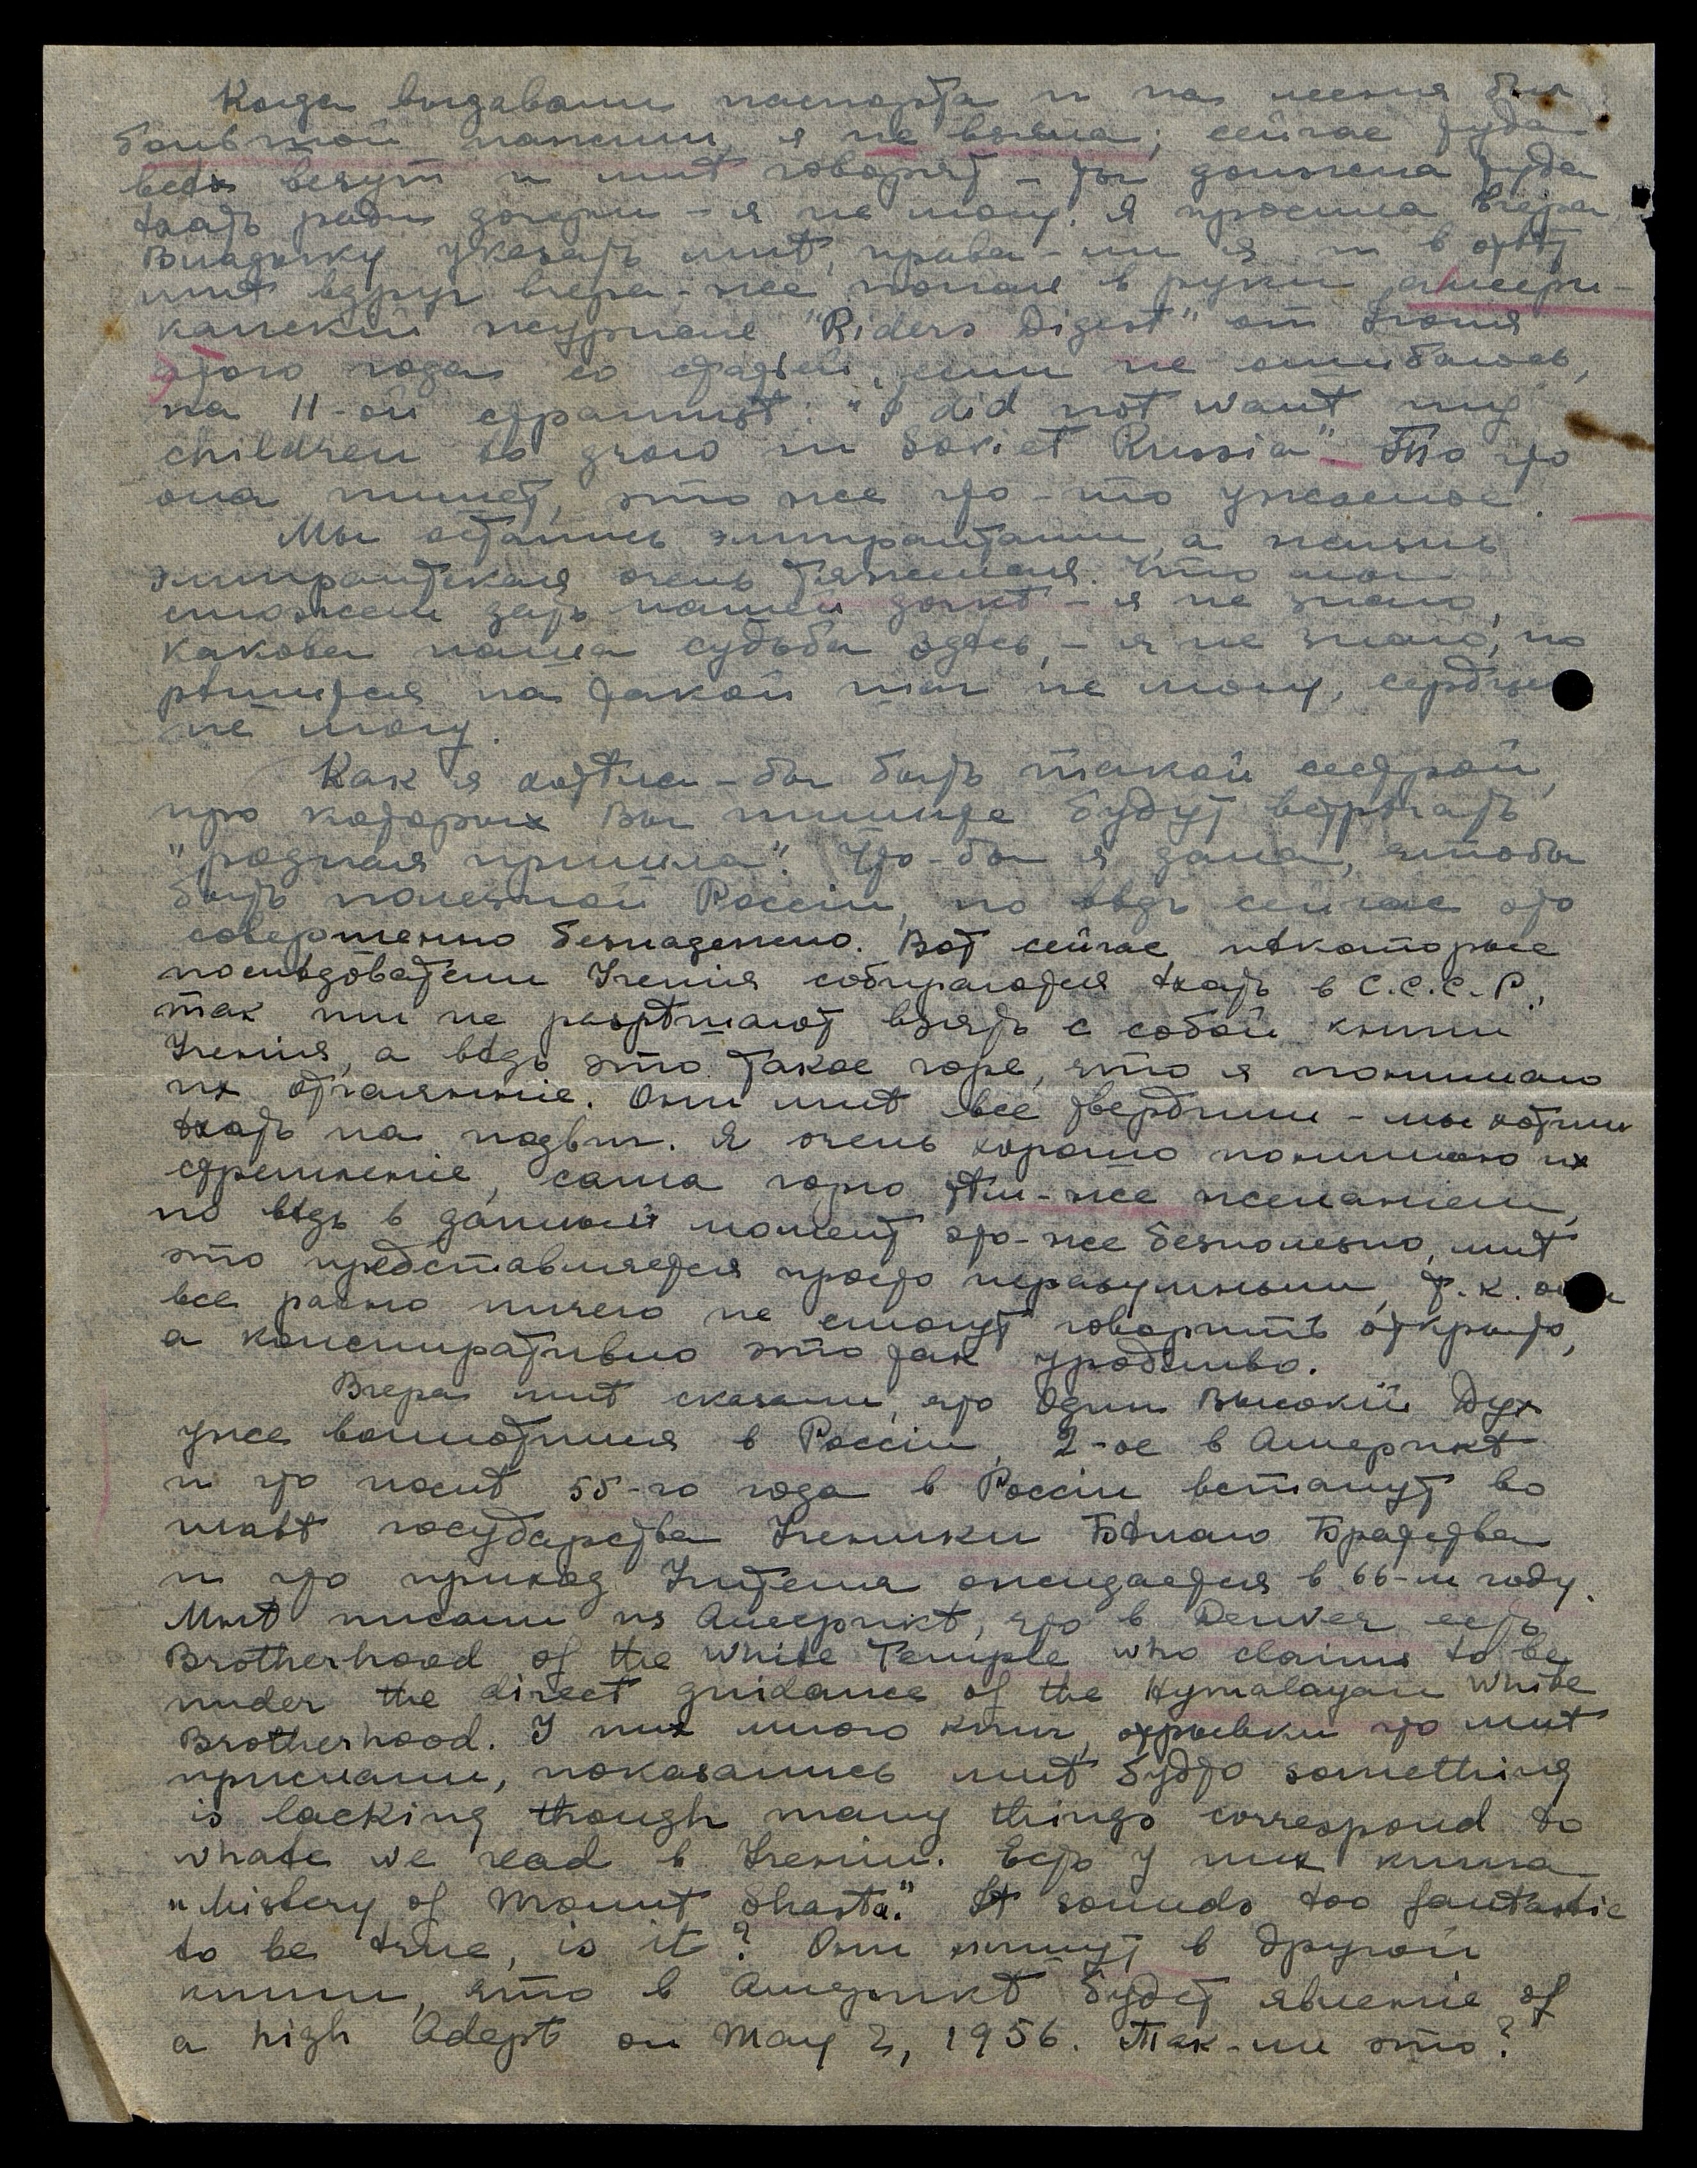 Когда выдавали паспорта и на меня был
большой нажим, я не взяла; сейчас туда
всѣх везут и мнѣ говорят – ты должна туда
ѣхать ради дочери – я не могу. Я просила вчера
Владыку указать мнѣ, права-ли я и в отвѣт
мнѣ вдруг вчера-же попал в руки амери-
канский журнал "Riders Digest" от Июня
этого года со статьей, если не ошибаюсь,
на 11-ой страницѣ: "I did not want my
children to grow in Soviet Russia". То что
она пишет, это же что-то ужасное.
Мы остались эмигрантами, а жизнь
эмигрантская очень тяжелая. Что мы
сможем дать нашей дочкѣ – я не знаю,
какова наша судьба здѣсь, – я не знаю, но
рѣшиться на такой шаг не могу, сердцем
не могу.
Как я хотѣла-бы быть такой сестрой,
про которых Вы пишите будут встрѣчать
"родная пришла". Что-бы я дала, чтобы
быть полезной России, но вѣдь сейчас это
совершенно безнадежно. Вот сейчас нѣкоторые
послѣдователи Ученія собираются ѣхать в С.С.С.Р.,
так им не разрѣшают взять с собой книги
Ученія, а вѣдь это такое горе, что я понимаю
их отчаянніе. Они мнѣ все твердили – мы хотим
ѣхать на подвиг. Я очень хорошо понимаю их
стремленіе, сама горю тѣм-же желанием,
но вѣдь в данный момент это-же безполезно, мнѣ
это представляется просто неразумным, т.к. они
все равно ничего не смогут говорить открыто,
а конспиративно это так уродливо.
Вчера мнѣ сказали, что Один Высокій Дух
уже воплотился в Россіи, 2-ое в Америкѣ
и что послѣ 55-го года в Россіи встанут во
главѣ государства Ученики Бѣлаго Братства
и что приход Учителя ожидается в 66-м году.
Мнѣ писали из Америкѣ, что в Denver есть
Brotherhood of the White Temple who claims to be
under the direct guidance of the Hymalayan White
Brotherhood. У них много книг, отрывки что мнѣ
прислали, показались мнѣ будто something
is lacking though many things correspond to
whate we read в Ученіи. Есть у них книга
"Mistery of Mount Shasta." It sounds too fantastic
to be true, is it? Они пишут в другой
книги, что в Америкѣ будет явленіе of
a high Adept on May 2, 1956. Так-ли это?